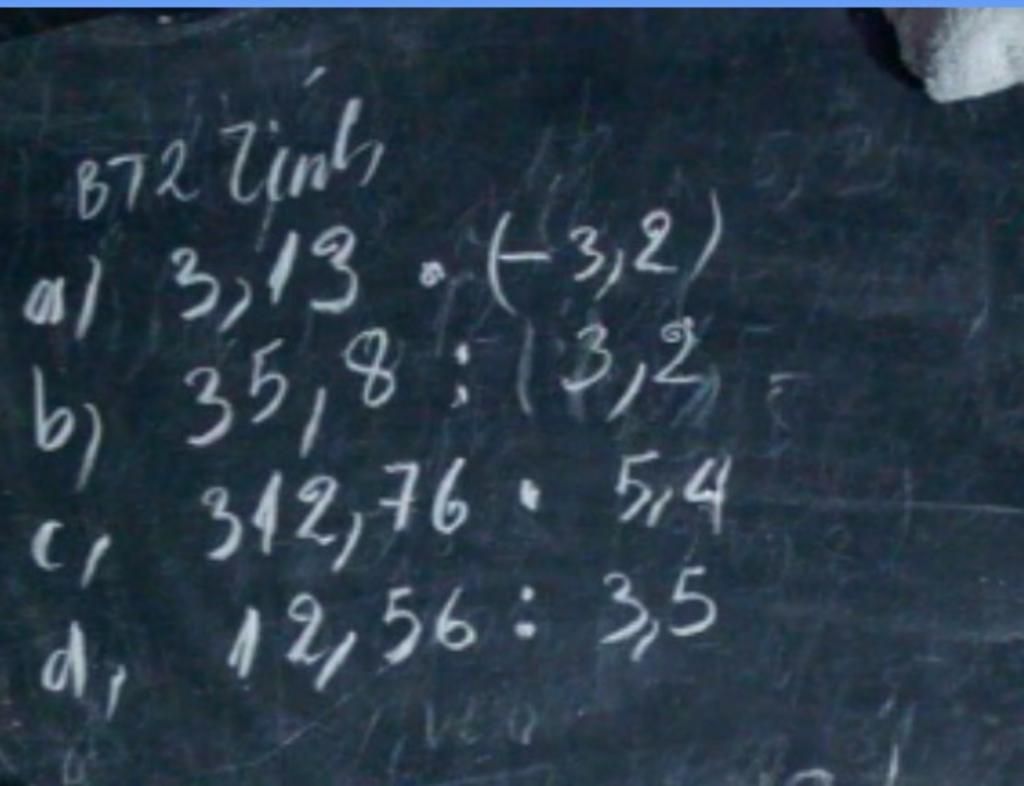 BT2 Tính
a) 3,13 . (-3,2)
b) 35,8 : ( 3,2
c, 312,76 . 5,4
d, 12,56 : 3,5